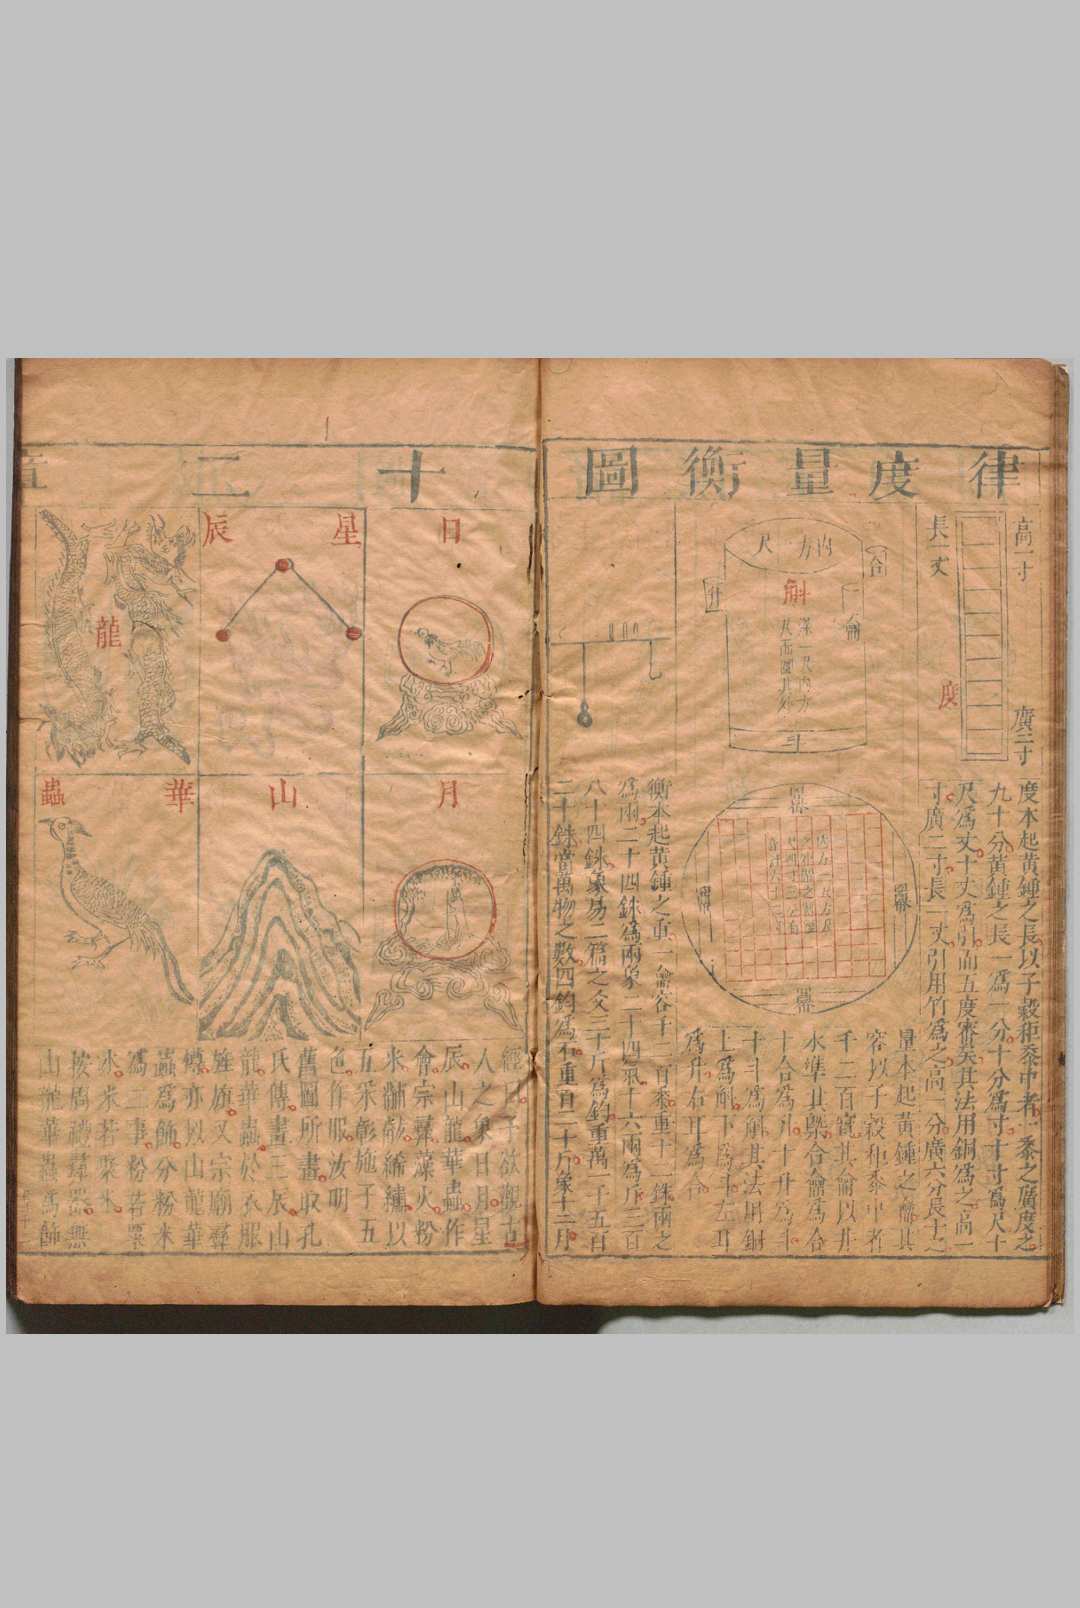 律度量衡圖
高一寸
廣二寸
長一丈
度
度本起黃鍾之長以子穀秬黍中者一黍之廣度之
九十分黃鍾之長一爲一分十分爲寸十寸爲尺十
尺爲丈十丈爲引而五度審矣其法用銅爲之高一
寸廣二寸長一丈引用竹爲之高一分廣六分長十丈
內方一尺
合
龠
升
斛
深一尺內方
尺而圜其外
斗
量本起黃鍾之龠其
容以子穀秬黍中者
千二百實其龠以井
水準其槩合龠爲合
十合爲升十升爲斗
十斗爲斛其法用銅
上爲斛下爲斗左耳
爲升右耳爲合
衡本起黃鍾之重一龠容千二百黍重十二銖兩之
爲兩二十四銖爲兩象二十四氣十六兩爲斤三百
八十四銖象易二篇之爻三十斤爲鈞重萬一千五百
二十銖當萬物之數四鈞爲石重百二十斤象十二月
十二章
日
星辰
龍
月
山
華蟲
經曰予欲觀古
人之象日月星
辰山龍華蟲作
會宗彝藻火粉
米黼黻絺繡以
五采彰施于五
色作服汝明
舊圖所畫取孔
氏傳畫三辰山
龍華蟲於衣服
旌旗又宗廟彝
鱒亦以山龍華
蟲爲飾分粉米
爲二事粉若粟
冰米若聚米
按周禮彝器無
山龍華蟲爲飾